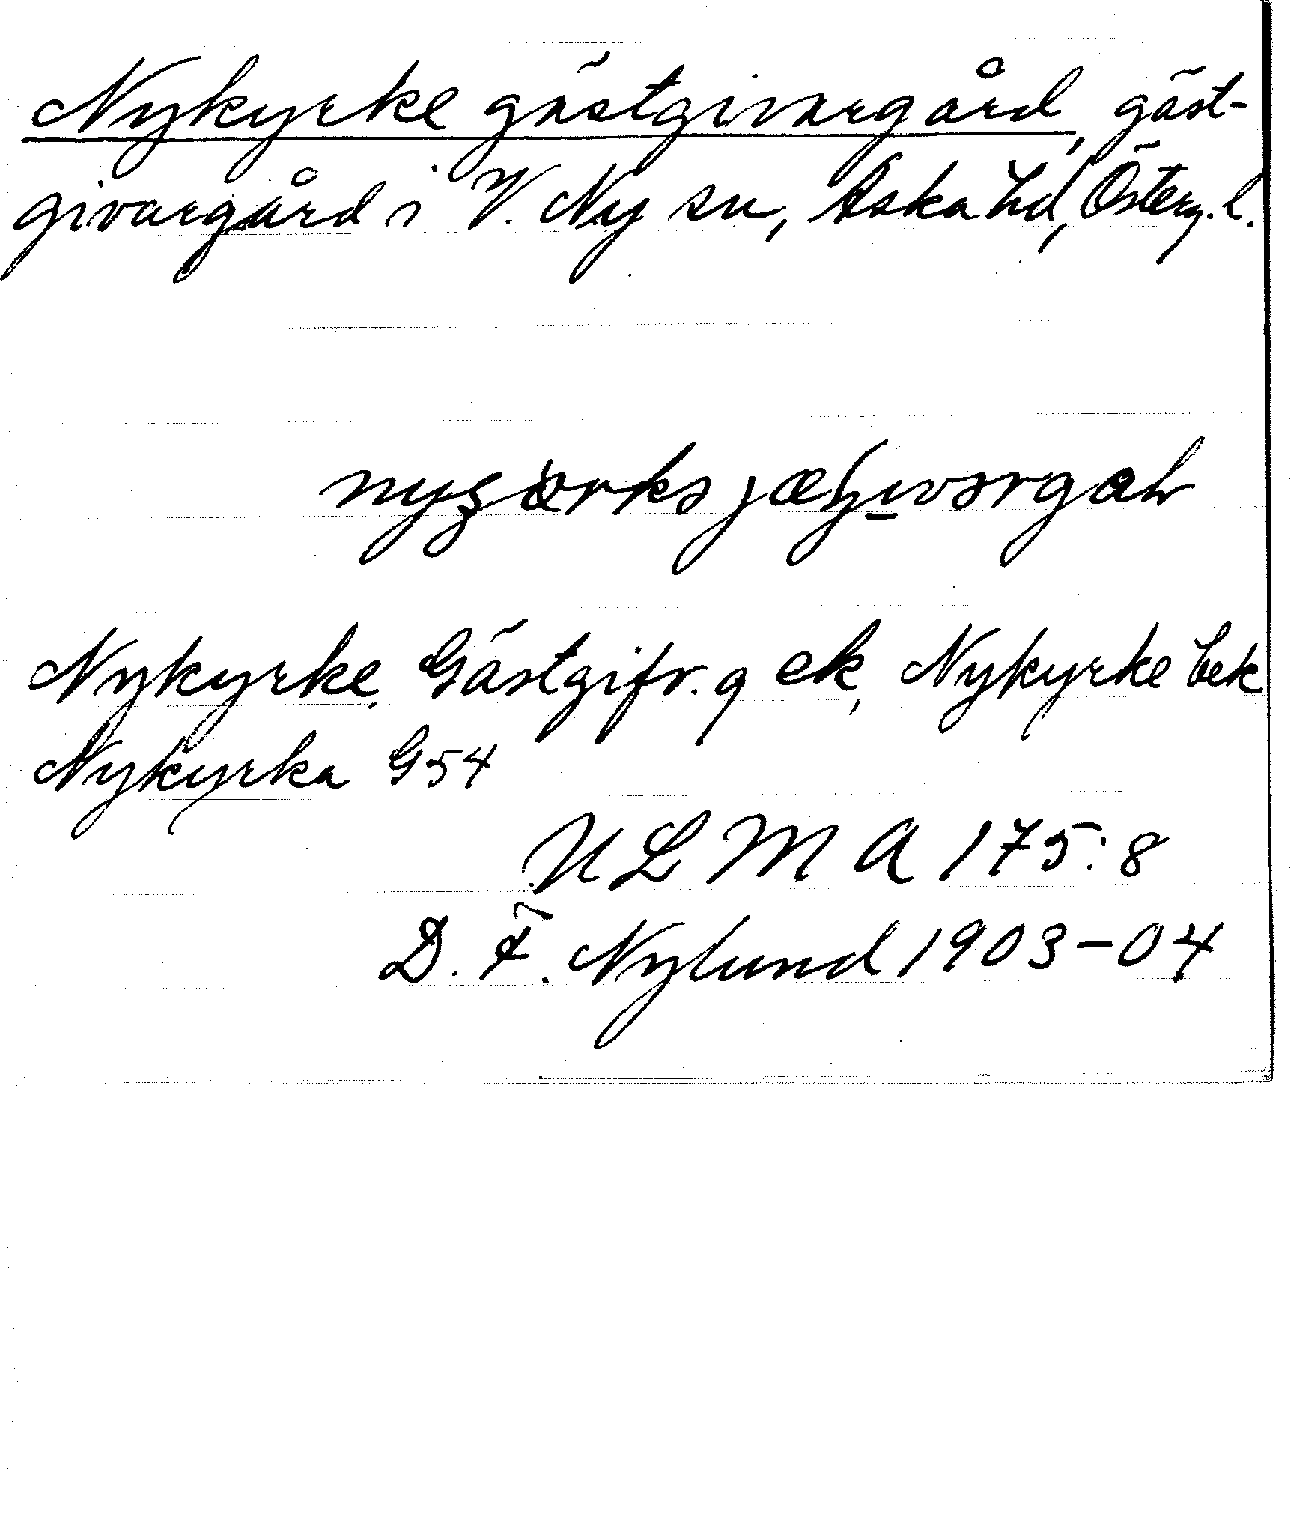 Nykyrke gästgivargård, gäst-
givargård i V. Ny sn, Aska hd, Österg. l.
Nykyrke, Gästgifv.g ek, Nykyrke bek
Nykyrka G54
ULMA 175:8
D. F. Nylund 1903-04